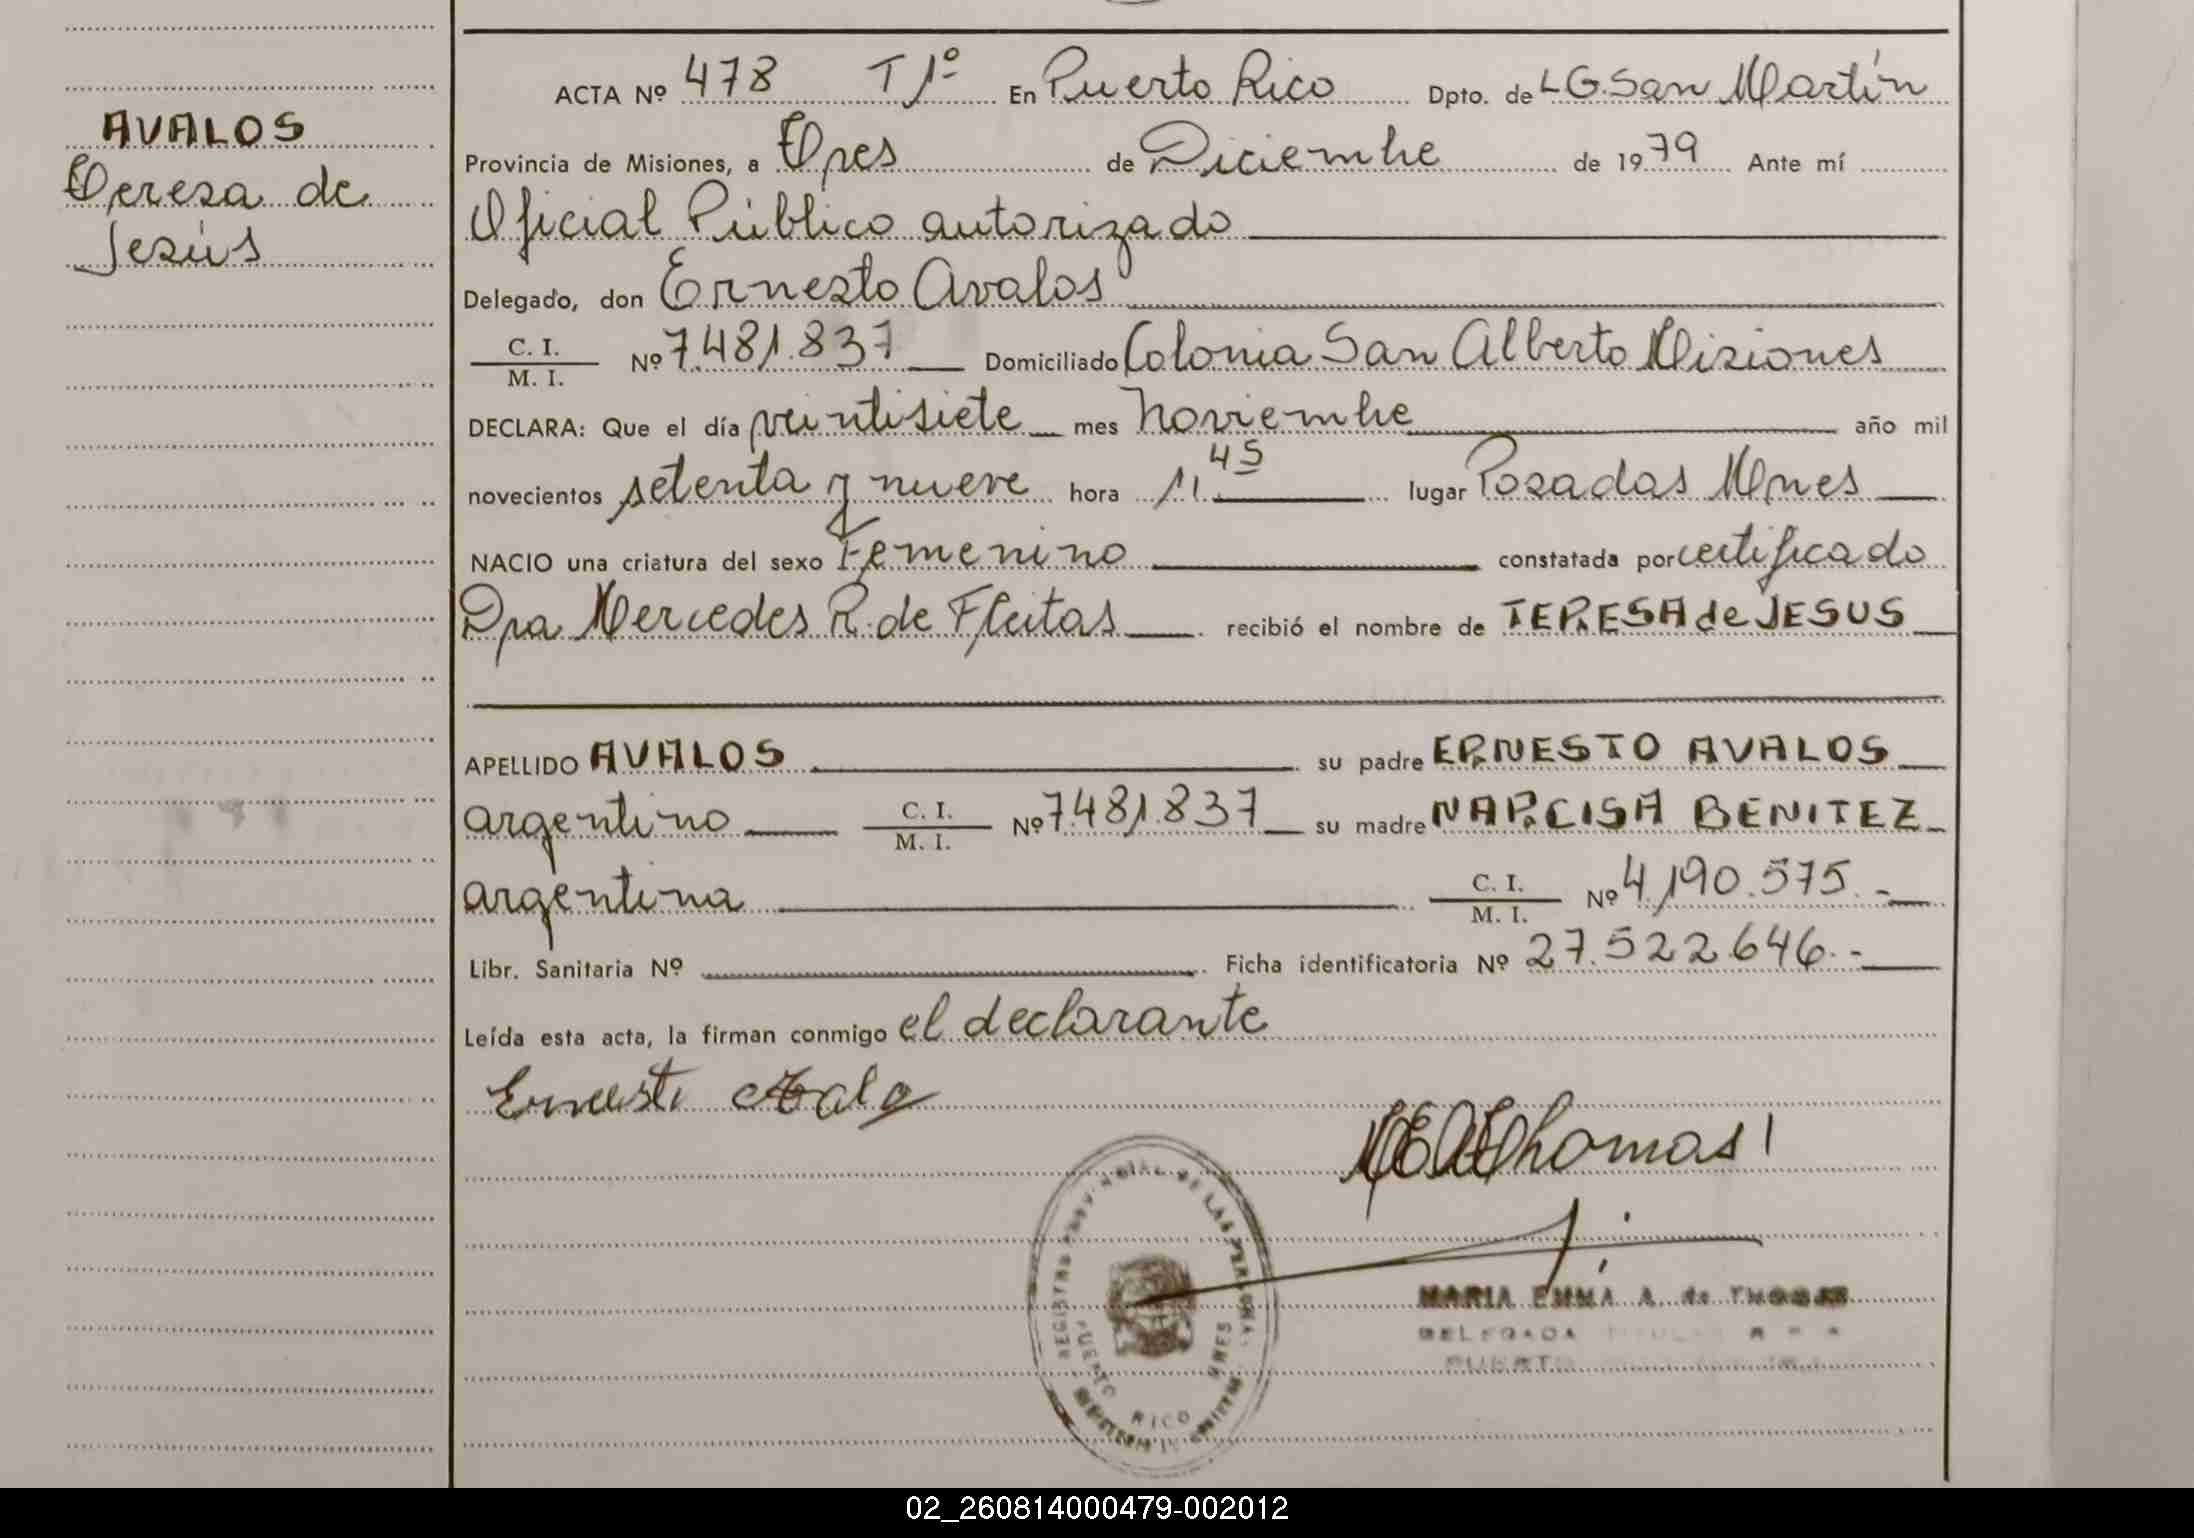 AVALOS
Teresa de
Jesús
ACTA Nº 478 T 1º En Puerto Rico Dpto. de L G. San Martín
Provincia de Misiones, a Tres de Diciembre de 1979 Ante mí
Oficial Público autorizado
Delegado, don Ernesto Avalos
C. I.
M. I. Nº 7.481.837 Domiciliado Colonia San Alberto Misiones
DECLARA: Que el día veintisiete mes noviembre año mil
novecientos setenta y nueve hora 11.45 lugar Posadas Mnes
NACIO una criatura del sexo Femenino constatada por certificado
Dra Mercedes R. de Fleitas recibió el nombre de TERESA de JESUS
APELLIDO AVALOS su padre ERNESTO AVALOS
argentino C. I. Nº 7.481.837 su madre NARCISA BENITEZ
M. I.
argentina C. I. Nº 4.190.575.-
M. I.
Libr. Sanitaria Nº Ficha identificatoria Nº 27.522.646.-
Leída esta acta, la firman conmigo el declarante
Ernesto
Thomas
REGISTRO PROVINCIAL DE LAS PERSONAS
PUERTO RICO MNES
MARIA EMMA A. de THOMAS
DELEGADA
PUERTO
02_260814000479-002012